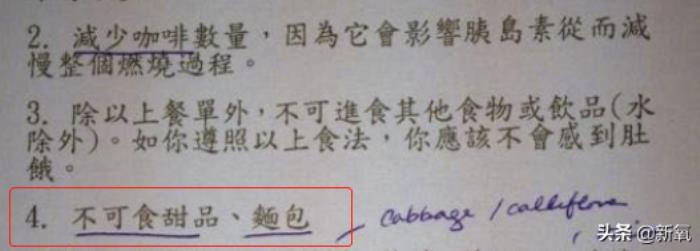 2. 減少咖啡數量，因為它會影響胰島素從而減
慢整個燃燒過程。
3. 除以上餐單外，不可進食其他食物或飲品(水
除外)。如你遵照以上食法，你應該不會感到肚
餓。
4. 不可食甜品、麵包 , cabbage / calliflove
头条 @新氧